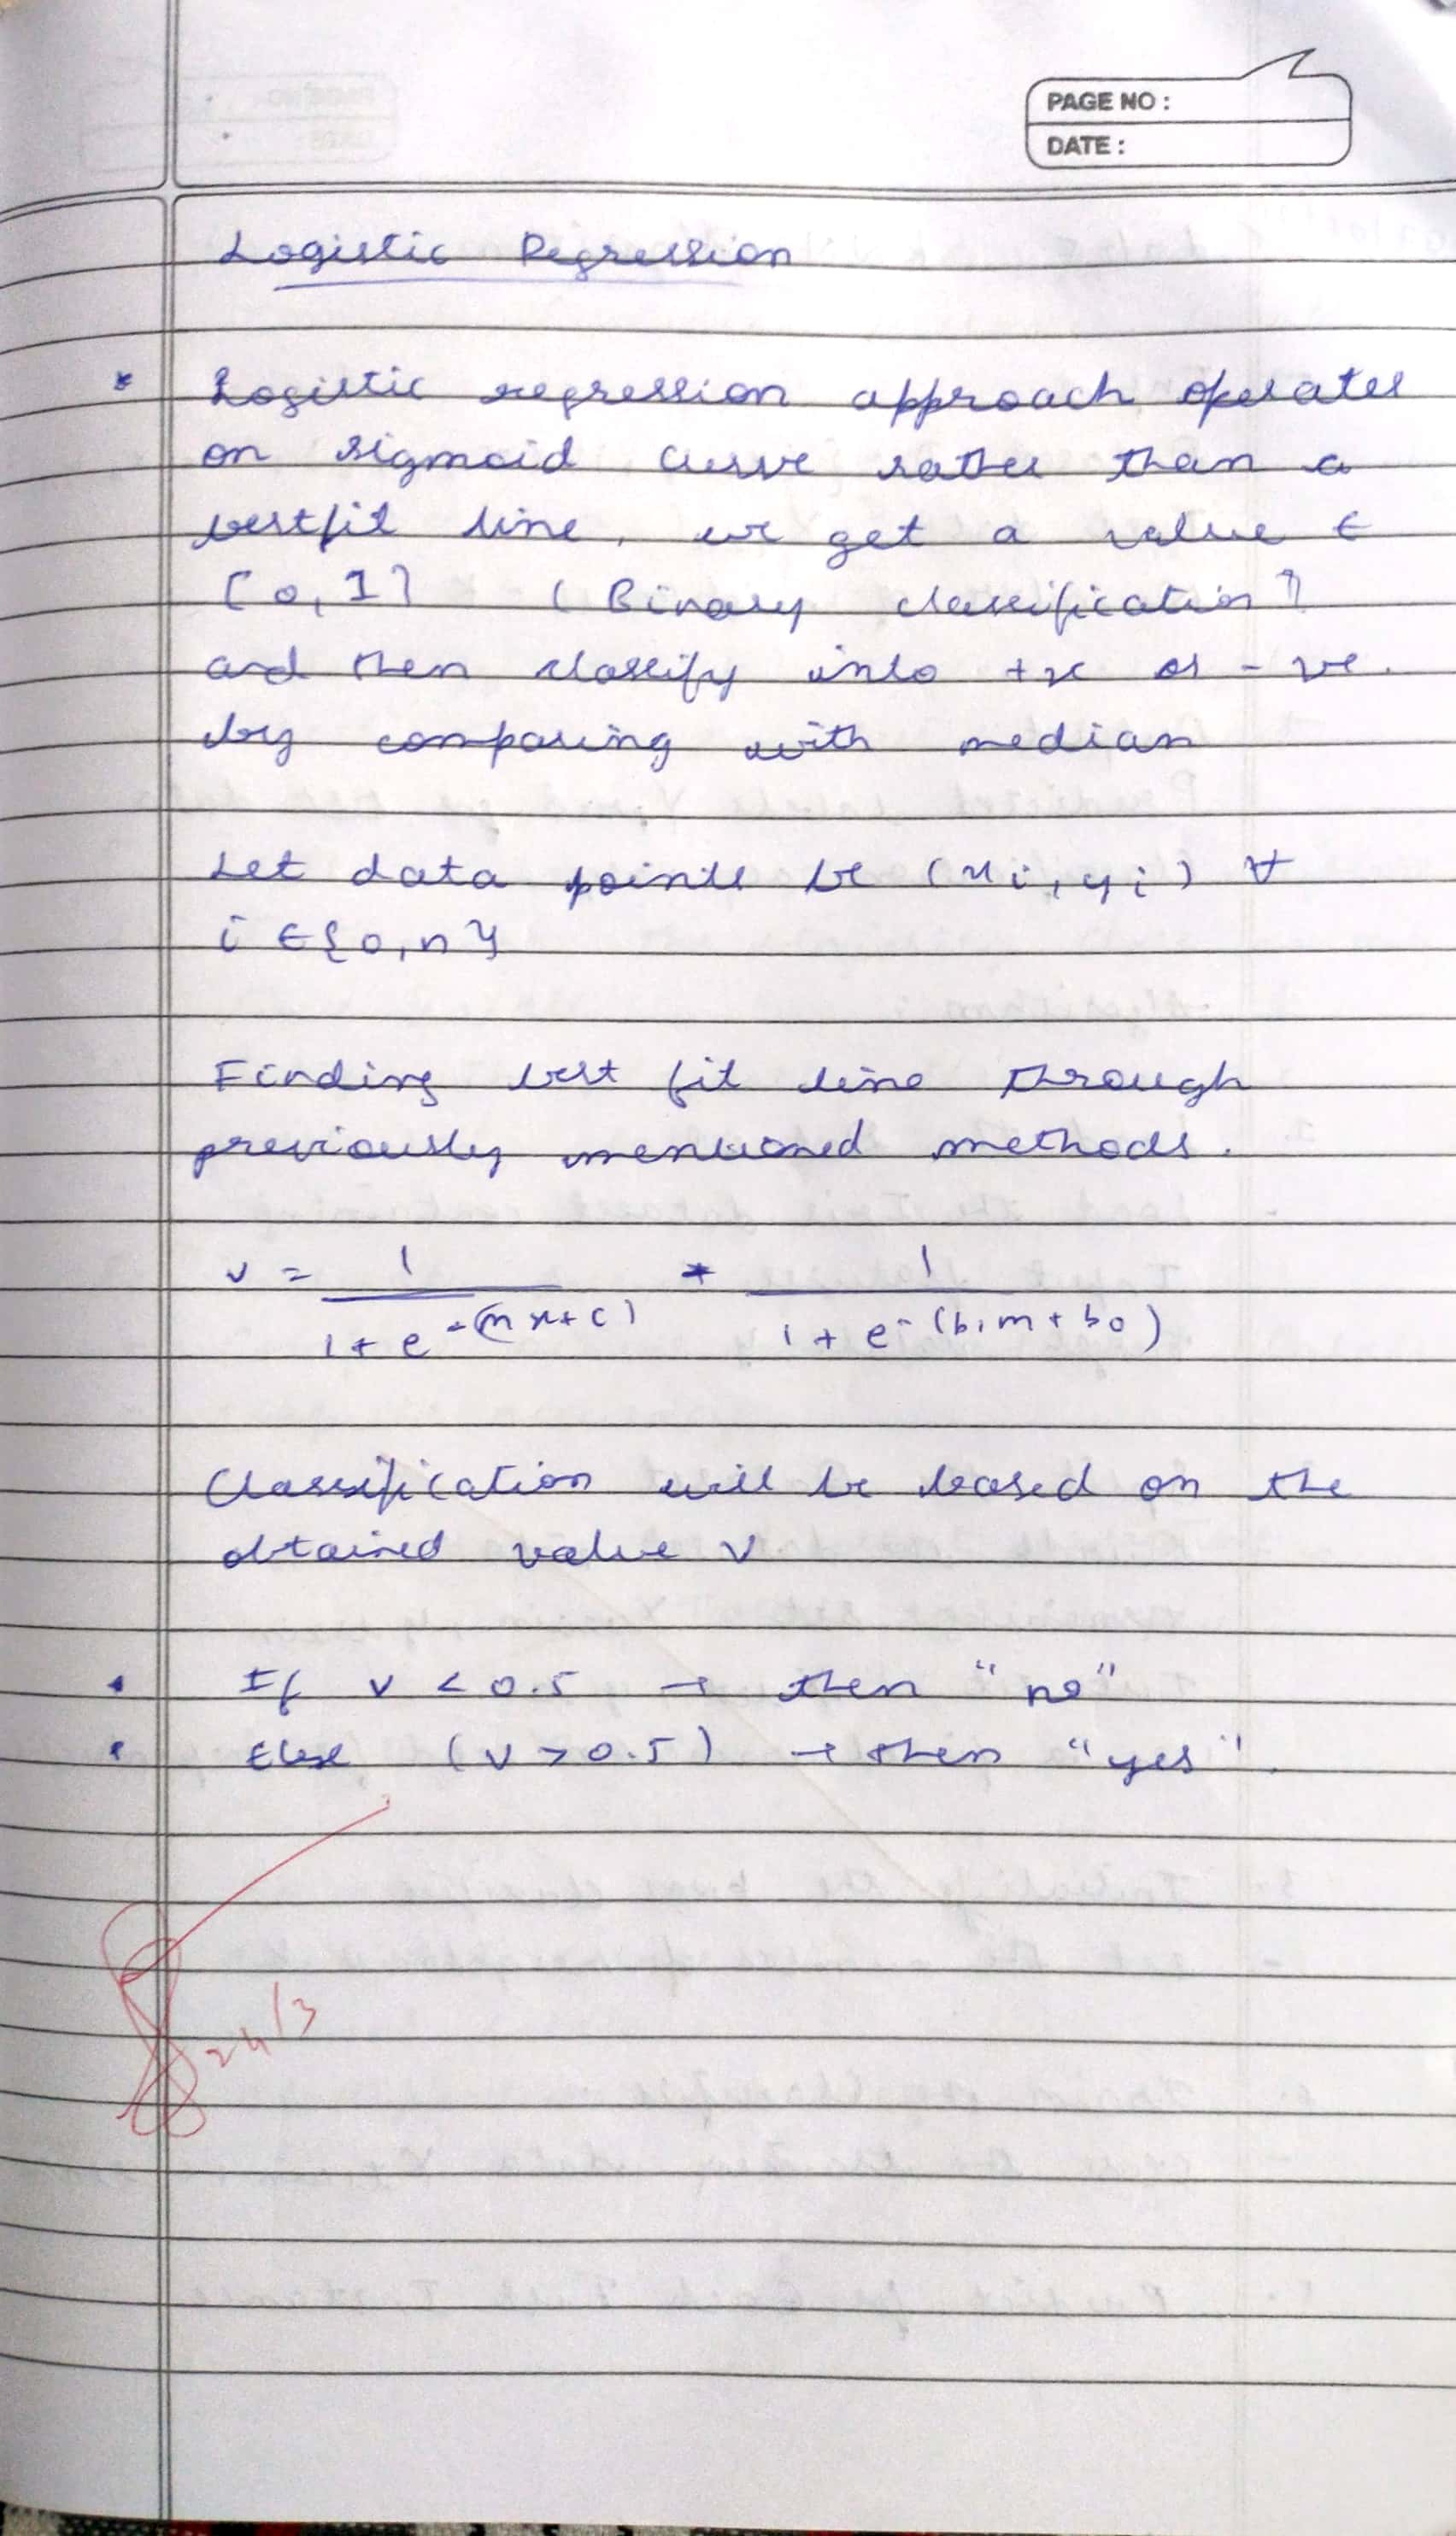 PAGE NO :
DATE :
Logistic Regression
* Logistic regression approach operates
on sigmoid curve rather than a
bestfit line, we get a value ∈
[0, 1] (Binary classification)
and then classify into +ve or -ve.
by comparing with median
Let data points be (xi, yi) ∀
i ∈ {0, n}
Finding best fit line through
previously mentioned methods.
v = 1 / (1 + e^-(mx+c)) * 1 / (1 + e^-(b1m + b0))
Classification will be based on the
obtained value v
• If v < 0.5 → then "no"
• Else (v > 0.5) → then "yes".
24/3